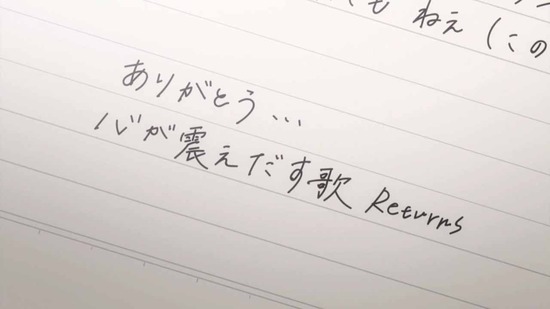 もねえ(この
ありがとう...
心が震えだす歌 Returns